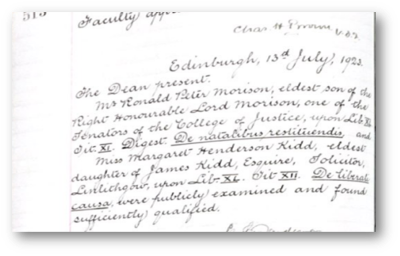 515
Faculty
Chas H Brown, V.D.
Edinburgh, 13th July, 1923.
The Dean present.
Mr Ronald Peter Morison, eldest son of the
Right Honourable Lord Morison, one of the
Senators of the College of Justice, upon Lib XL
Tit XI. Digest. De natalibus restituendis, and
Miss Margaret Henderson Kidd, eldest
daughter of James Kidd, Esquire, Solicitor,
Linlithgow, upon Lib XL. Tit XII. De liberali
causa, were publicly examined and found
sufficiently qualified.